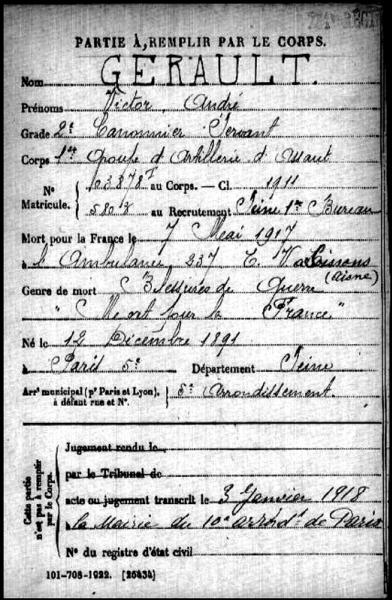 PARTIE À REMPLIR PAR LE CORPS.
Nom GERAULT.
Prénoms Victor André
Grade 2e Canonnier Servant
Corps 1er Groupe d'Artillerie d'
N° Matricule. 10387 au Corps. — Cl. 1911
5803 au Recrutement Seine 1er Bureau
Mort pour la France le 7 Mai 1917
à l'Ambulance 237 Soissons (Aisne)
Genre de mort Blessures de Guerre
"Mort pour la France"
Né le 12 Décembre 1891
à Paris 5e Département Seine
Arrt municipal (pr Paris et Lyon), à défaut rue et N°. 5e Arrondissement.
Cette partie n'est pas à remplir par le Corps.
Jugement rendu le
par le Tribunal de
acte ou jugement transcrit le 3 Janvier 1918
à la Mairie du 10e arrondt de Paris
N° du registre d'état civil
101-708-1922. [26434]